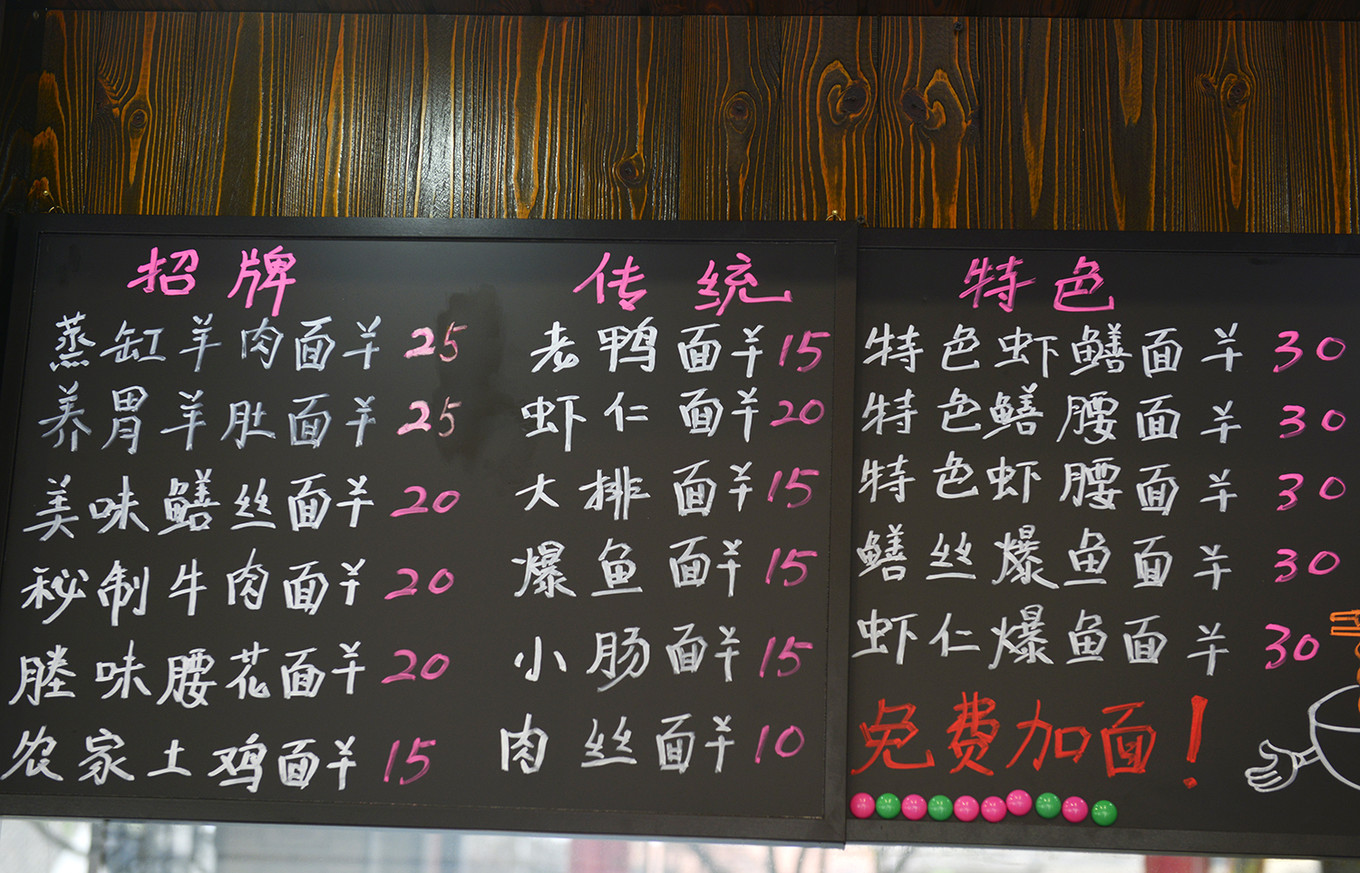 招牌
蒸缸羊肉面¥25
养胃羊肚面¥25
美味鳝丝面¥20
秘制牛肉面¥20
味腰花面¥20
农家土鸡面¥15
传统
老鸭面¥15
虾仁面¥20
大排面¥15
爆鱼面¥15
小肠面¥15
肉丝面¥10
特色
特色虾鳝面¥30
特色鳝腰面¥30
特色虾腰面¥30
鳝丝爆鱼面¥30
虾仁爆鱼面¥30
免费加面!